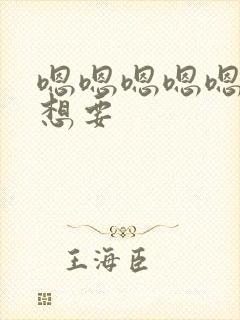 嗯嗯嗯嗯嗯
想要
王海臣